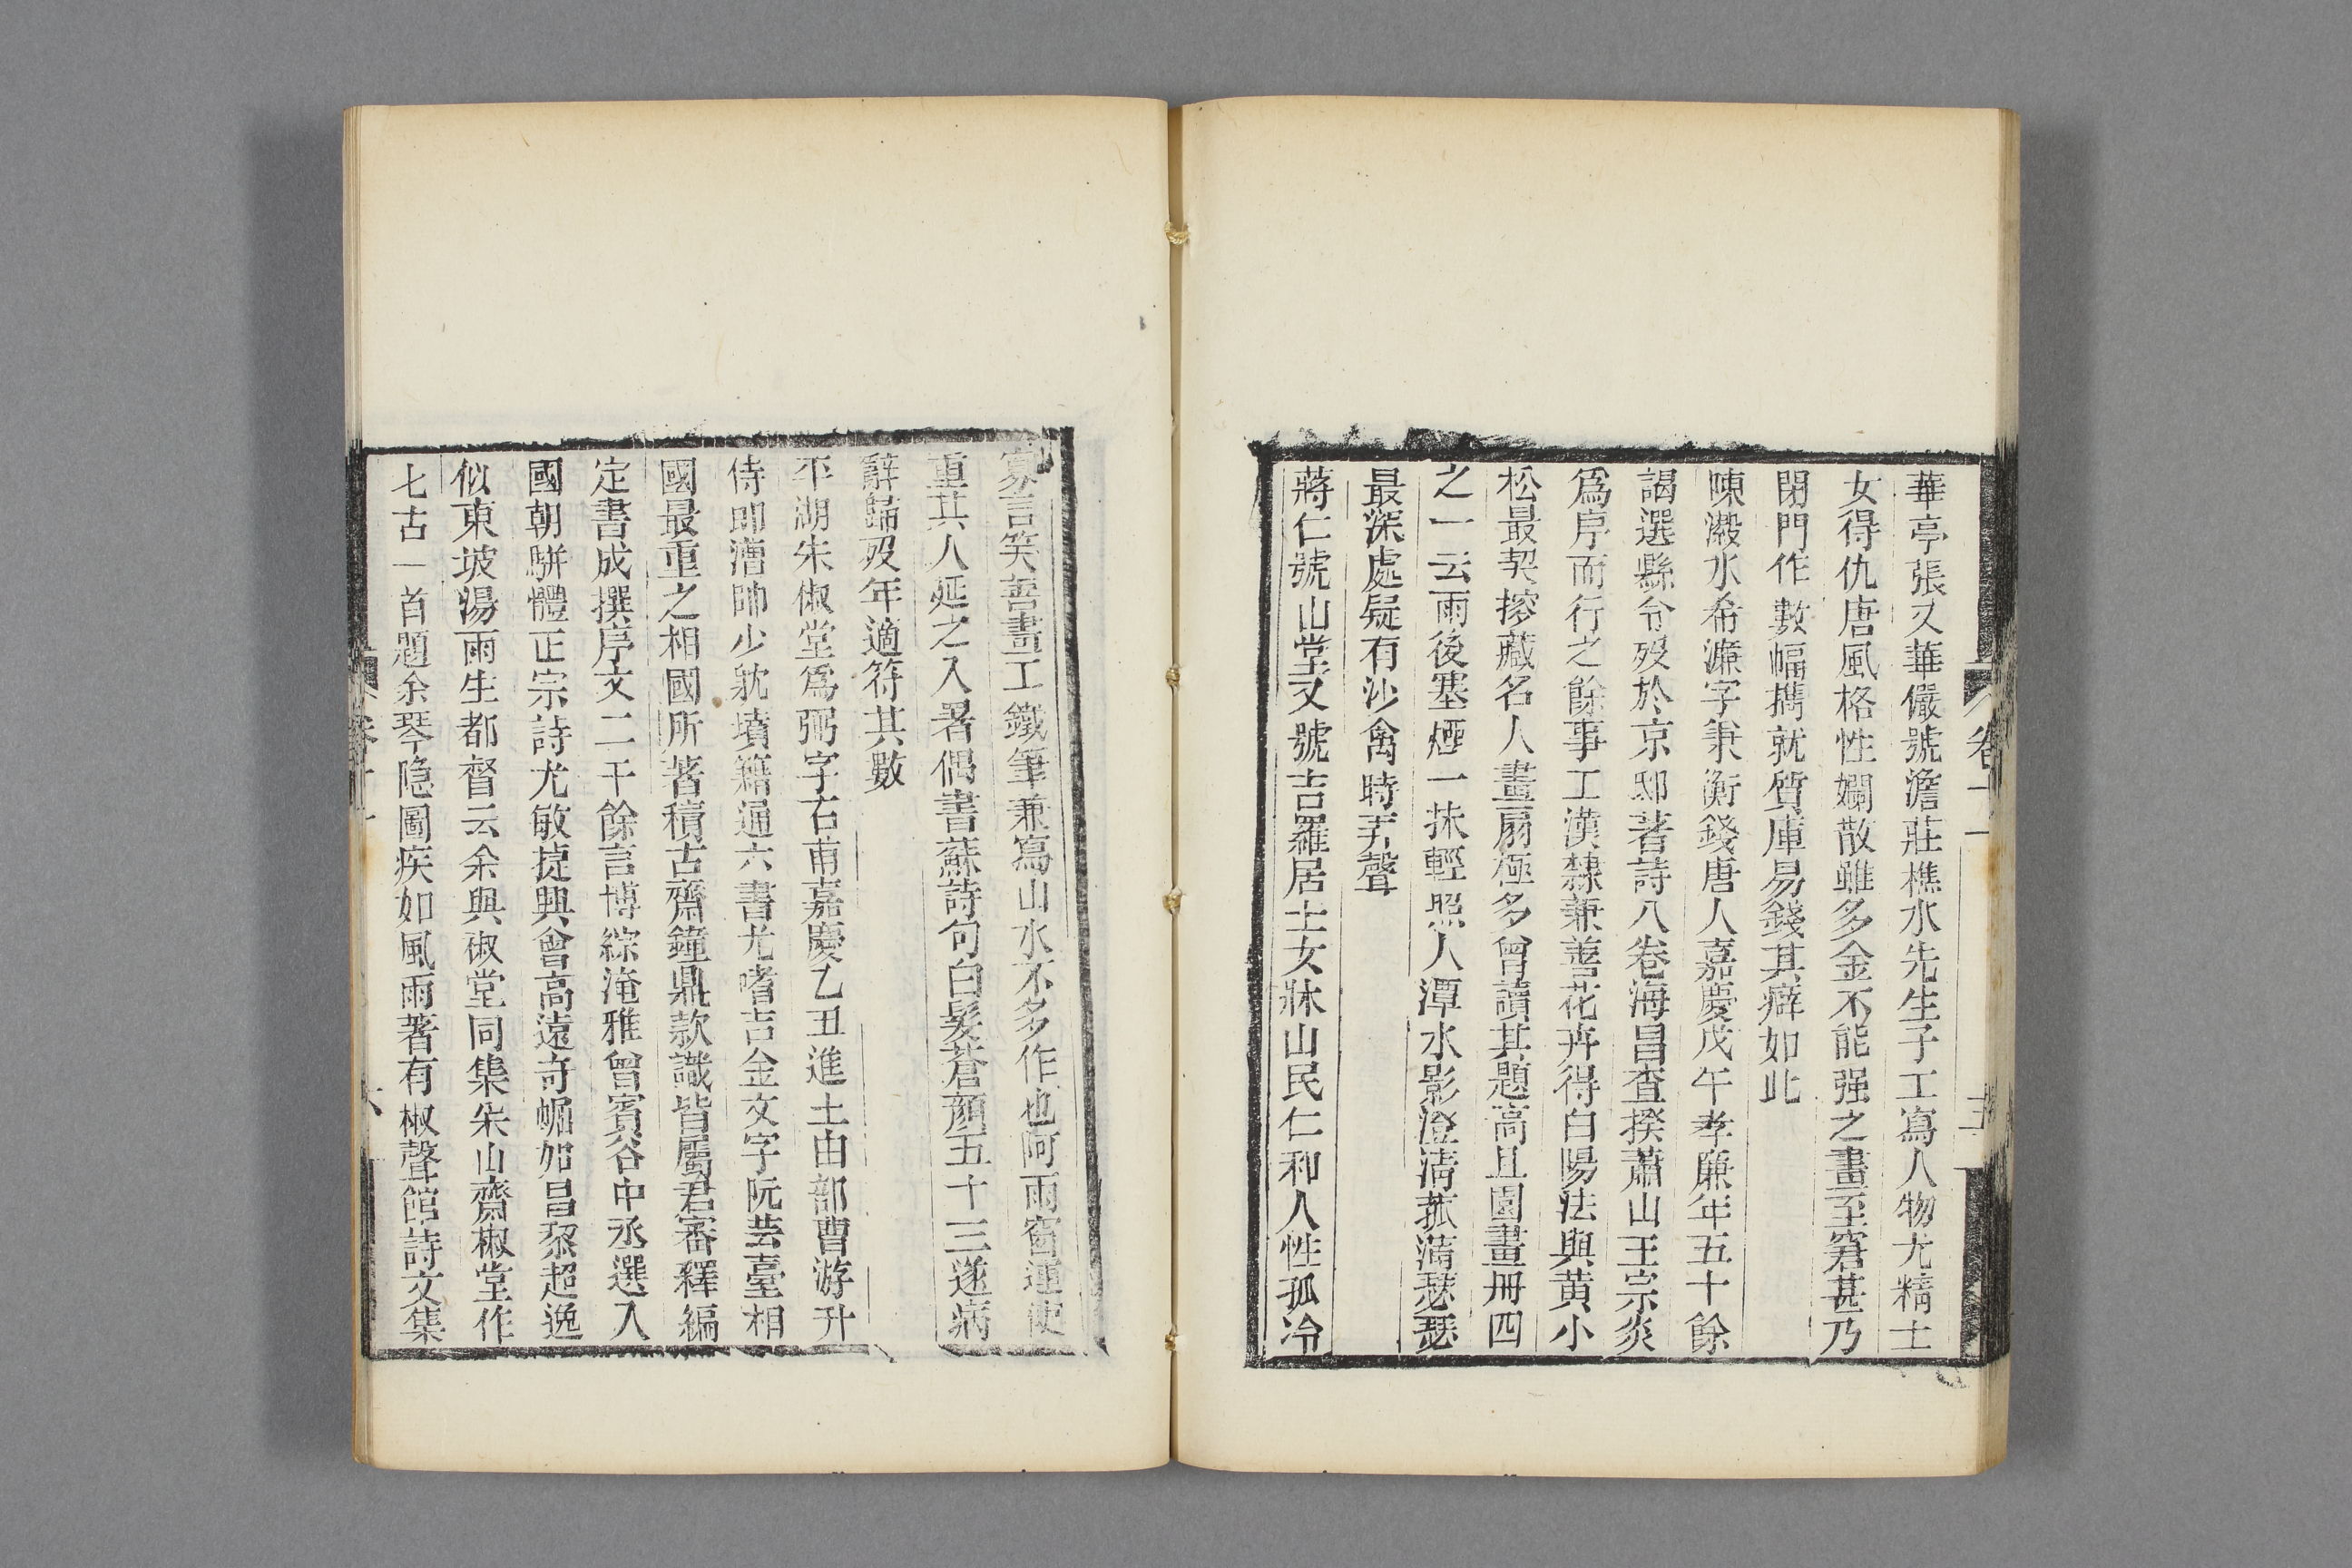 華亭張又華儼號澹莊樵水先生子工寫人物尤精士
女得仇唐風格性嬾散雖多金不能强之畫至窘甚乃
閉門作數幅攜就質庫易錢其癖如此
陳瀫水希濂字秉衡錢唐人嘉慶戊午孝廉年五十餘
謁選縣令歿於京邸著詩八卷海昌查揆蕭山王宗炎
爲序而行之餘事工漢隸兼善花卉得白陽法與黄小
松最契搜藏名人畫扇極多曾讀其題高且園畫冊四
之一云雨後塞煙一抹輕照人潭水影澄淸菰蒲瑟瑟
最深處疑有沙禽時弄聲
蔣仁號山堂又號吉羅居士女牀山民仁和人性孤冷
卷十一
寡言笑善書工鐵筆兼寫山水不多作也阿雨窗運使
重其人延之入署偶書蘇詩句白髮蒼顏五十三遂病
辭歸歿年適符其數
平湖朱椒堂爲弼字右甫嘉慶乙丑進士由部曹游升
侍郎漕帥少躭墳籍通六書尤嗜吉金文字阮芸臺相
國最重之相國所著積古齋鐘鼎款識皆屬君審釋編
定書成撰序文二千餘言博綜淹雅曾賓谷中丞選入
國朝駢體正宗詩尤敏捷興會高遠奇崛如昌黎超逸
似東坡湯雨生都督云余與椒堂同集朱山齋椒堂作
七古一首題余琴隱圖疾如風雨著有椒聲館詩文集
卷十一
六